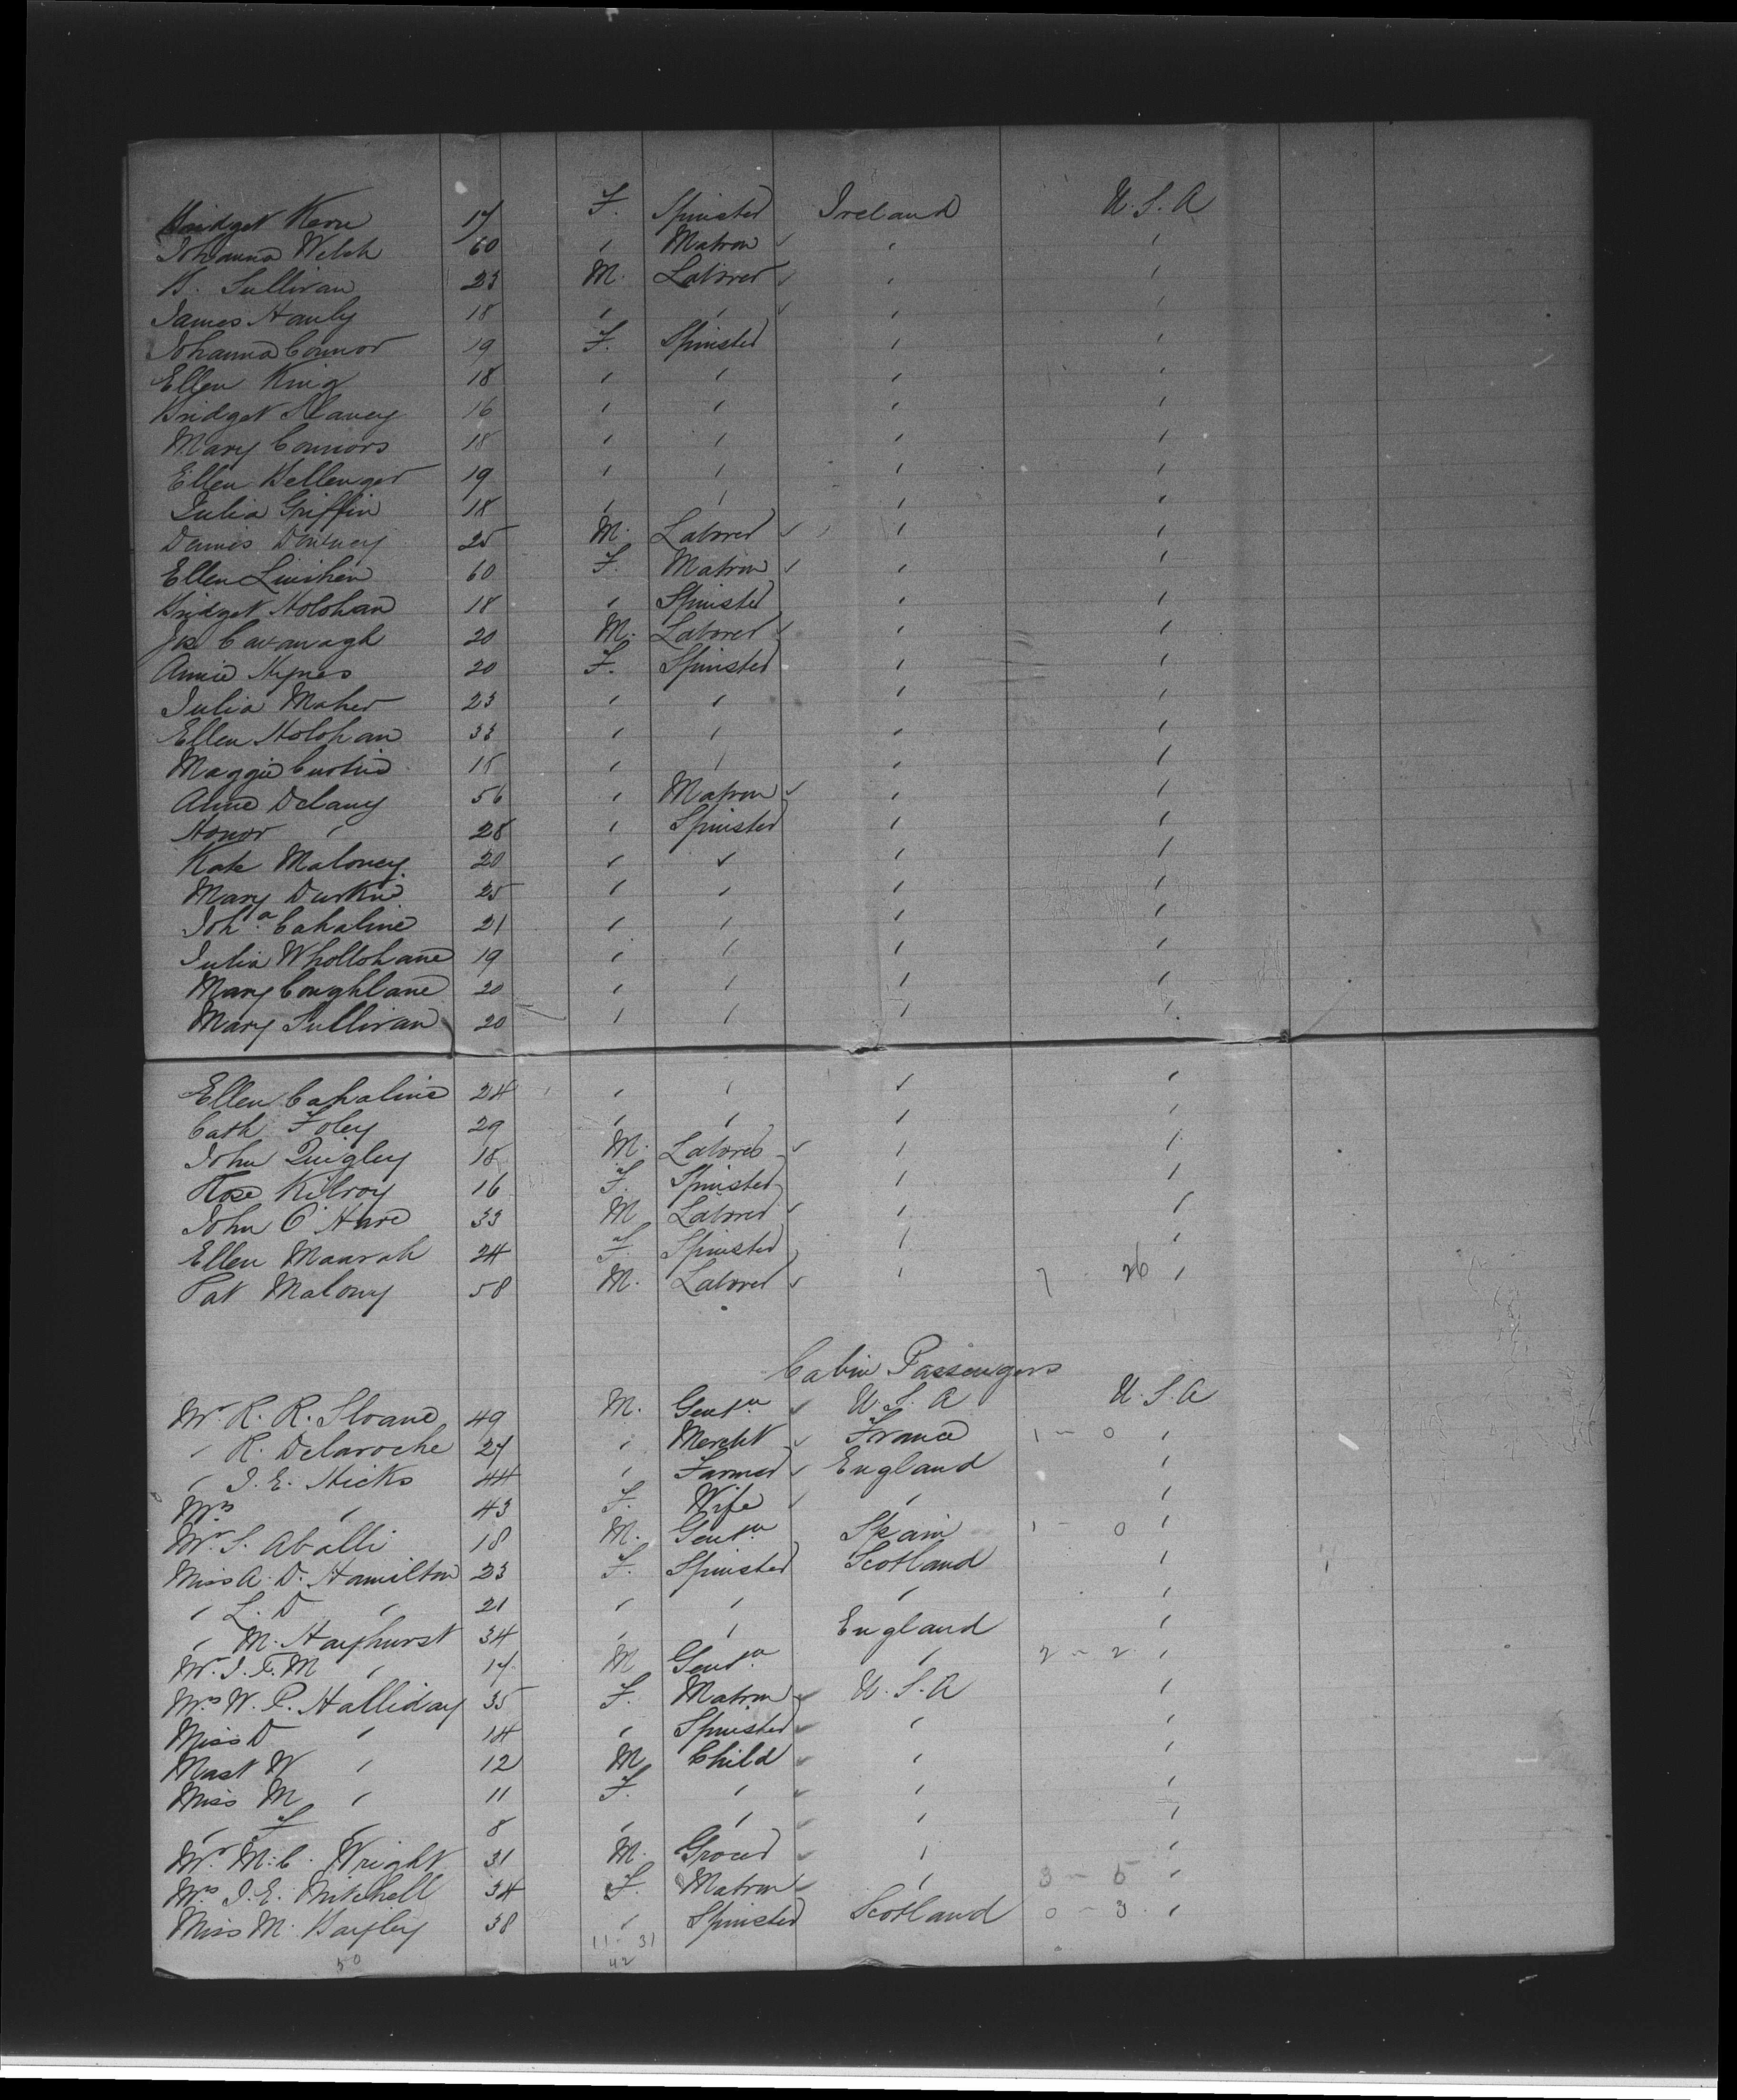 Bridget Kerre 17 F. Spinster Ireland U.S.A
Johanna Welsh 60 " Matron " "
B. Sullivan 23 M. Laborer " "
James Hanly 18 " " " "
Johanna Connor 19 F. Spinster " "
Ellen King 18 " " " "
Bridget Slaney 16 " " " "
Mary Connors 18 " " " "
Ellen Bellenger 19 " " " "
Julia Griffin 18 " " " "
Dennis 25 M. Laborer " "
Ellen 60 F. Matron " "
Bridget Holohan 18 " Spinster " "
Jas Cavanagh 20 M. Laborer " "
Annie Hynes 20 F. Spinster " "
Julia Maher 23 " " " "
Ellen Holohan 33 " " " "
Maggie 15 " " " "
Anne Delany 56 " Matron " "
Honor " 28 " Spinster " "
Kate Maloney 20 " " " "
Mary Durkin 25 " " " "
Joha. Cahaline 21 " " " "
Julia Whollohane 19 " " " "
Mary Coughlane 20 " " " "
Mary Sullivan 20 " " " "
Ellen Cahaline 24 " " " "
Cath Foley 29 " " " "
John Quigley 18 M. Laborer " "
Rose Kilroy 16 F. Spinster " "
John O'Hare 33 M Laborer " "
Ellen Maarah 24 F. Spinster " "
Pat Malony 58 M. Laborer " 7 26 "
Cabin Passengers
Mr. R. R. Sloane 49 M. Gentn U.S.A U.S.A
" R. Delaroche 27 " Mercht France 1 - 0 "
" J. E. Hicks 44 " Farmer England "
Mrs " 43 F. Wife " "
Mr. S. Aballi 18 M. Gentn Spain 1 - 0 "
Miss A. D. Hamilton 23 F. Spinster Scotland "
" L. D " 21 " " " "
" M. Hayhurst 34 " " England "
Mr. J. F. M " 17 M Gentn " 2 - 2 "
Mrs W. P. Halliday 35 F. Matron U.S.A "
Miss D " 14 " Spinster " "
Mast W " 12 M Child " "
Miss M " 11 F. " " "
" F " 8 " " " "
Mr. M. C. Wright 31 M. Grocer " "
Mrs J. E. Mitchell 34 F. Matron " 3 - 5 "
Miss M. Bayley 38 " Spinster Scotland 0 - 3 "
11 - 31
50 42